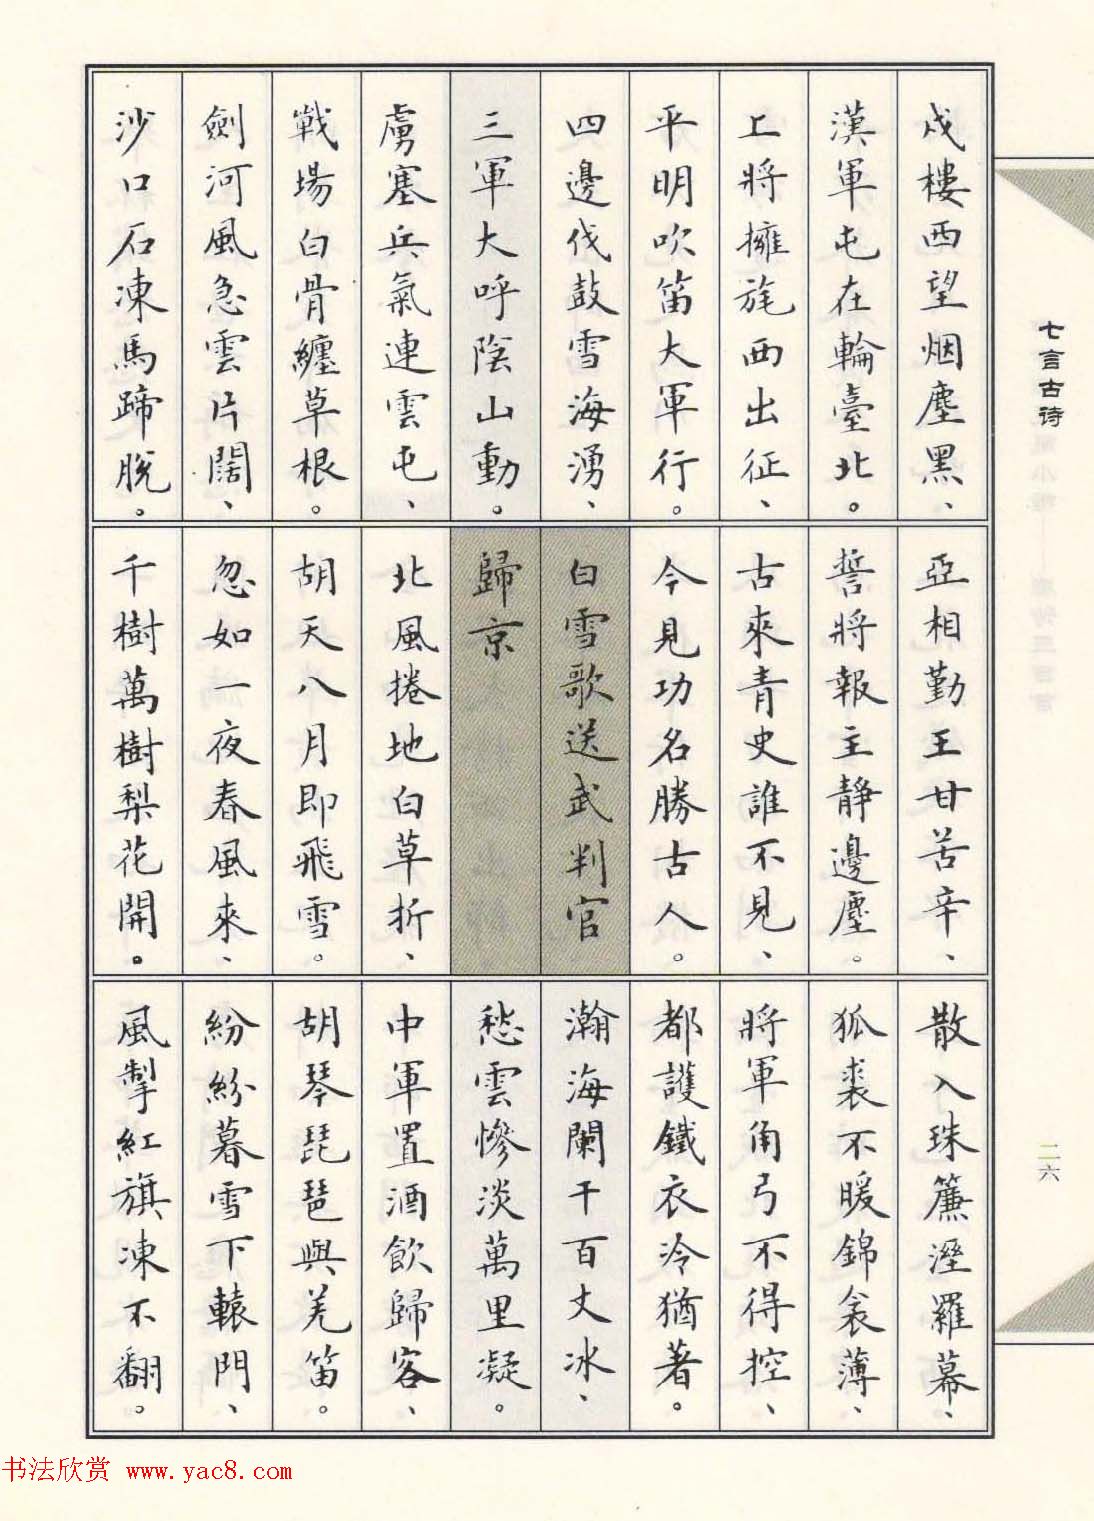 戍樓西望烟塵黑、
漢軍屯在輪臺北。
上將擁旄西出征、
平明吹笛大軍行。
四邊伐鼓雪海湧、
三軍大呼陰山動。
虜塞兵氣連雲屯、
戰場白骨纏草根。
劍河風急雲片闊、
沙口石凍馬蹄脫。
亞相勤王甘苦辛、
誓將報主靜邊塵。
古來青史誰不見、
今見功名勝古人。
白雪歌送武判官
歸京
北風捲地白草折、
胡天八月即飛雪。
忽如一夜春風來、
千樹萬樹梨花開。
散入珠簾溼羅幕、
狐裘不暖錦衾薄、
將軍角弓不得控、
都護鐵衣冷猶著。
瀚海闌干百丈冰、
愁雲慘淡萬里凝。
中軍置酒飲歸客、
胡琴琵琶與羌笛。
紛紛暮雪下轅門、
風掣紅旗凍不翻。
七言古诗
二六
书法欣赏 www.yac8.com